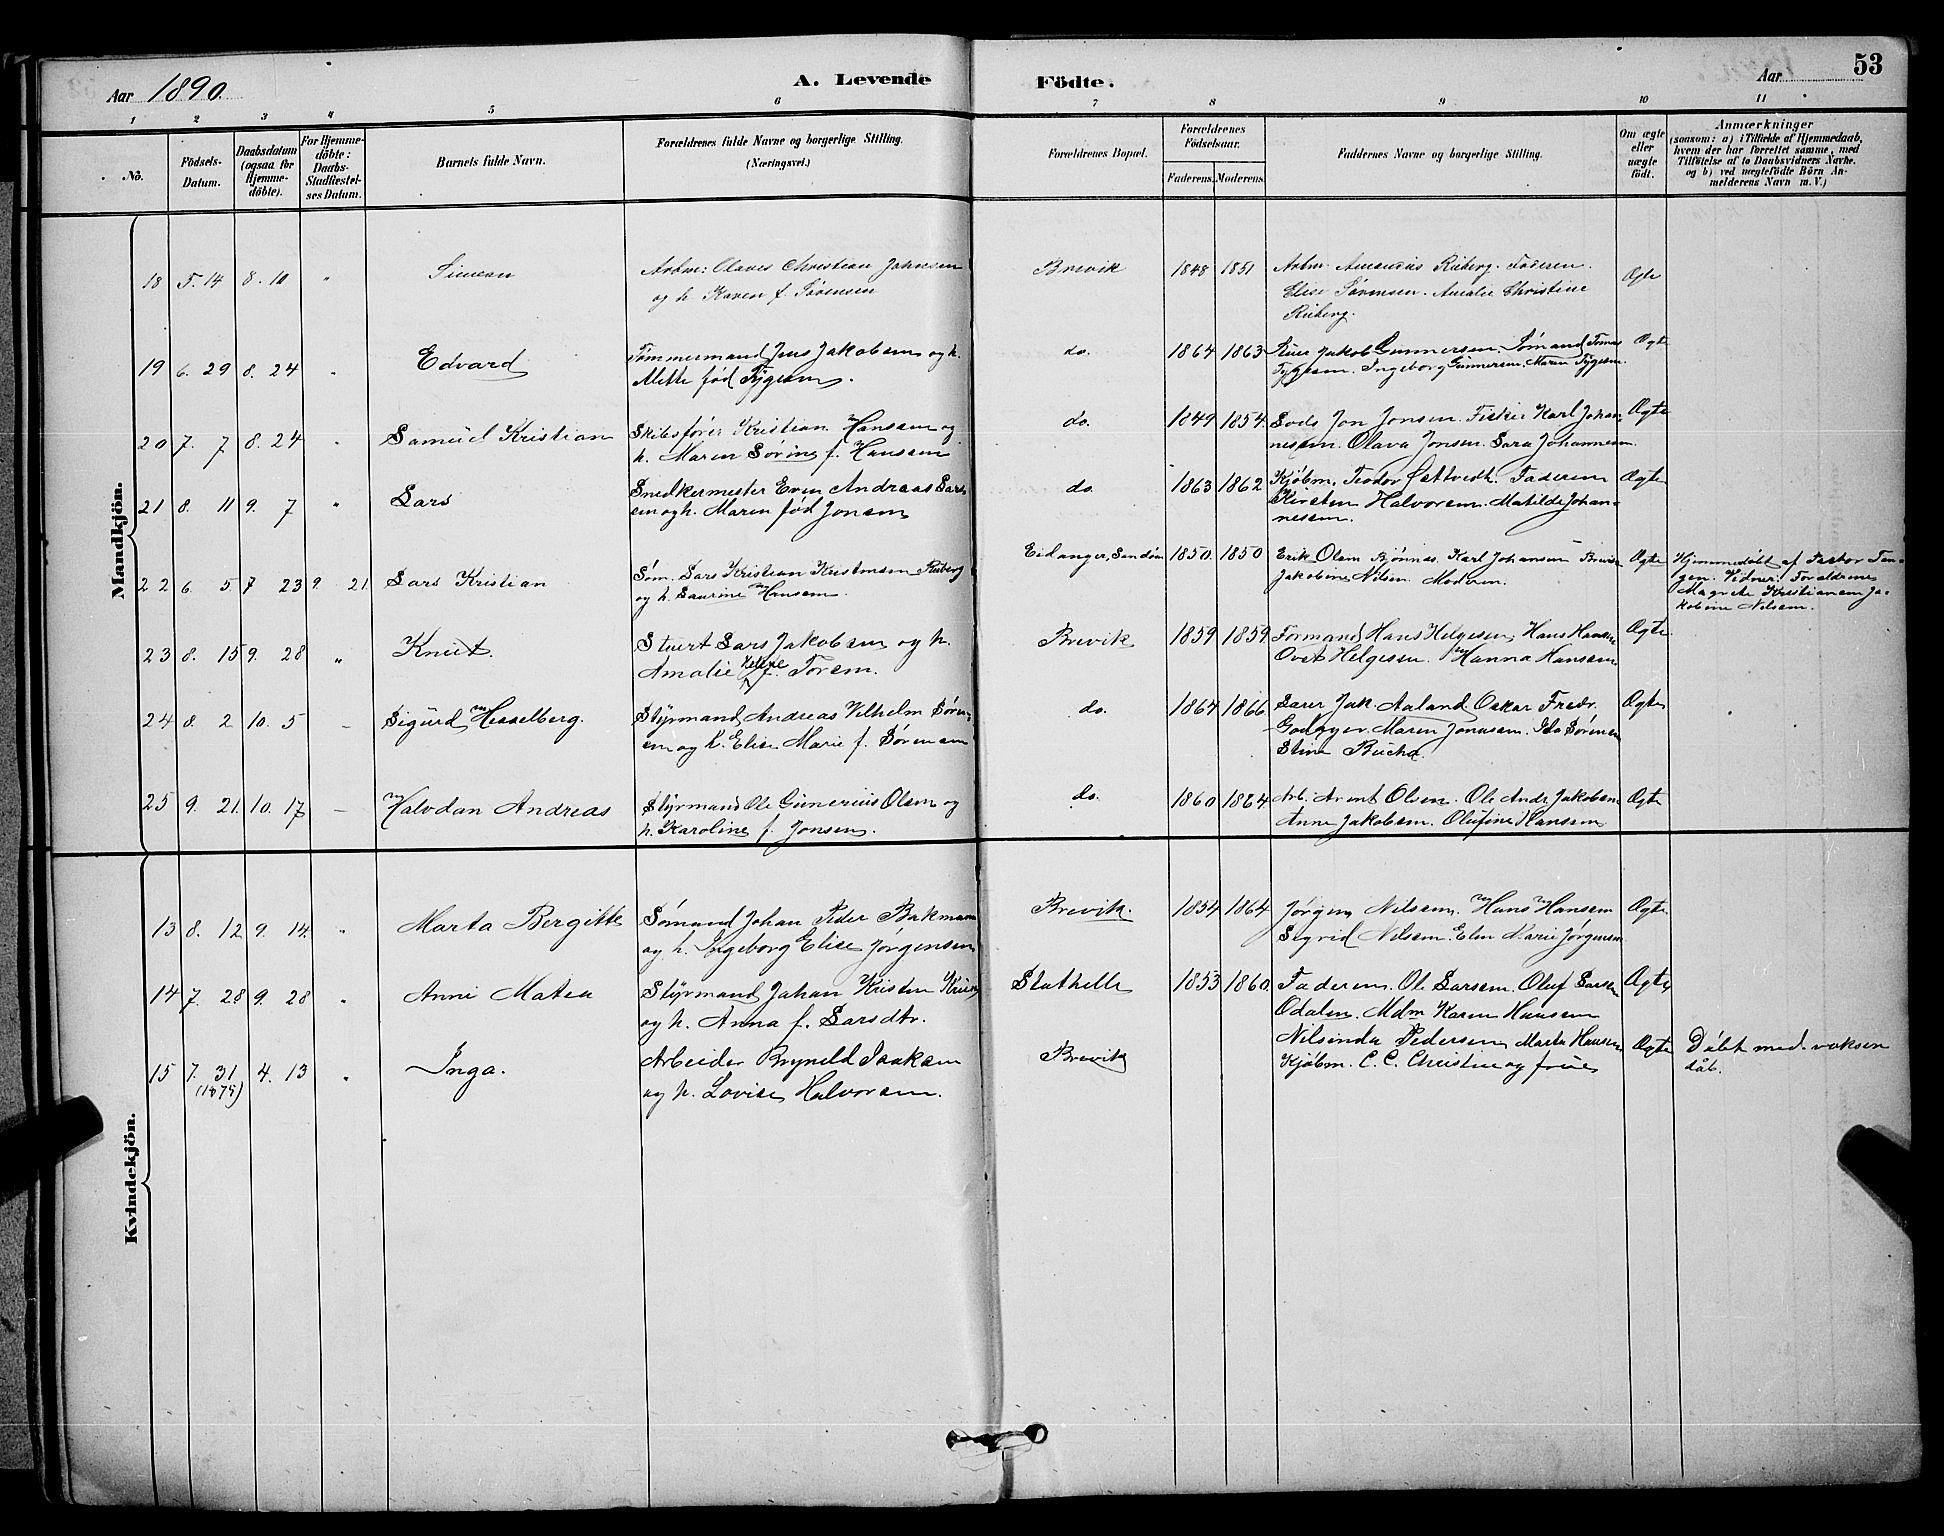 Aar 1890.
A. Levende Födte.
Aar
53
1 2 3 4 5 6 7 8 9 10 11
No.
Födsels-Datum.
Daabsdatum (ogsaa for Hjemme-döbte).
For Hjemme-döbte: Daabs-Stadfæstel-ses Datum.
Barnets fulde Navn.
Forældrenes fulde Navne og borgerlige Stilling.
(Næringsvei.)
Forældrenes Bopæl.
Forældrenes Födselsaar.
Faderens. Moderens.
Faddernes Navne og borgerlige Stilling.
Om ægte eller uægte födt.
Anmærkninger
(saasom: a) i Tilfælde af Hjemmedaab,
hvem der har forrettet samme, med
Tilföielse af to Daabsvidners Navne.
og b) ved uægtefödte Börn An-
melderens Navn m. V.)
Mandkjön.
18 5. 14 8. 10 " Simean
Arbm: Olaves Christian Johnsen
og h. Karen f. Sørensen
Brevik 1848 1851
Arbm Amandus Rieberg. Faderen.
Elise Sørensen. Amalie Christine
Rieberg.
Ægte
19 6. 29 8. 24 " Edvard
Tømmermand Jens Jakobsen og h.
Mette fød Tygesen.
do. 1864 1863
Jakob Gunnersen. Sømand Tomas
Tygesen. Ingeborg Gunnersen. Maren Tygesen.
Ægte
20 7. 7 8. 24 " Samuel Kristian
Skibsfører Kristian Hansen og
h. Maren Sørine f. Hansen
do. 1849 1854.
Lods Jon Jonsen. Fisker Karl Johan-
nesen. Olava Jonsen. Sara Johannesen.
Ægte
21 8. 11 9. 7 " Lars
Snedkermester Even Andreas Lars-
en og h. Maren fød Jonsen
do. 1863 1862
Kjøbm. Teodor Østtvedt. Faderen
Kirsten Halvorsen. Matilde Johan-
nesen.
Ægte
22 6. 5 7 23 9. 21 Lars Kristian
Søm. Lars Kristian Kristensen Rieberg
og h. Laurine Hansen.
Eidanger, Sandøen 1850. 1850
Erik Olsen Bjønnes. Karl Johansen Brevik
Jakobine Nilsen. Moderen.
Ægte
Hjemmedøbt af Pastor Tan-
gen. Vidner: Forældrene
Magrete Kristiansen Ja-
kobine Nilsen.
23 8. 15 9. 28 " Knut.
Stuert Lars Jakobsen og h.
Amalie Helene f. Toresen.
Brevik 1859 1859
Formand Hans Helgesen, Hans Hansen
Helgesen. Hanna Hansen
Ægte
24 8. 2 10. 5 – Sigurd Hesselberg.
Styrmand Andreas Vilhelm Søren-
sen og h. Elise Marie f. Sørensen
do. 1864 1866.
Jak Aaland Oskar Fredr.
Maren Jonassen. Ida Sørensen
Stine Bucha.
Ægte
25 9. 21. 10. 17 – Halvdan Andreas
Styrmand Ole Gunerius Olsen og
h. Karoline f. Jonsen.
do. 1860 1864
Arb. Arent Olsen. Ole Andr Jakobsen
Anne Jakobsen. Olufine Hansen
Ægte
Kvindekjön.
13 8. 12 9. 14. " Marta Bergitte
Sømand Johan Peder Bakmann
og h. Ingeborg Elise Jørgensen
Brevik. 1854 1864
Jørgen Nilsen. Hans Hansen
Sigrid Nilsen. Elen Marie Jørgensen
Ægte
14 7. 28 9. 28 " Anne Matea
Styrmand Johan Kristen
og h. Anna f. Larsdtr.
Stathelle 1853 1860.
Faderen. Ole Larsen. Oluf Larsen
Odalen. Mdm Karen Hansen
Ægte
15 7. 31 (1875) 4. 13 " Inga.
Arbeider Brynild Isaksen
og h. Lovise Halvorsen.
Brevik
Nilsinda Pedersen Marta Hansen
Kjøbm. C. C. Christie og frue
Ægte
Døbt med voksen
dåb.